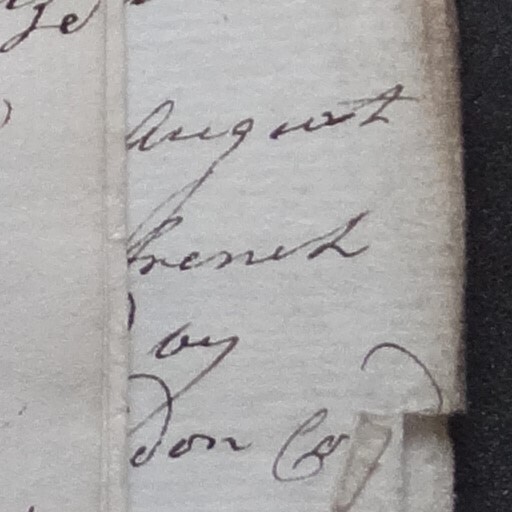 August
french
oy
don Co